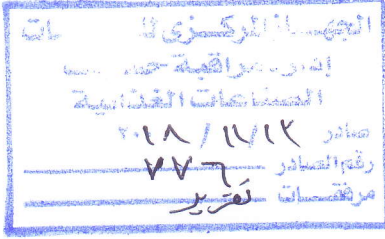 الجهاز المركزى للـ ات
إدارة مراقبة حسـ
الصناعات الغذائية
صادر ١٢/ ١١/ ٢٠١٨
رقم الصادر ٧٧٦
مرفقات تقرير